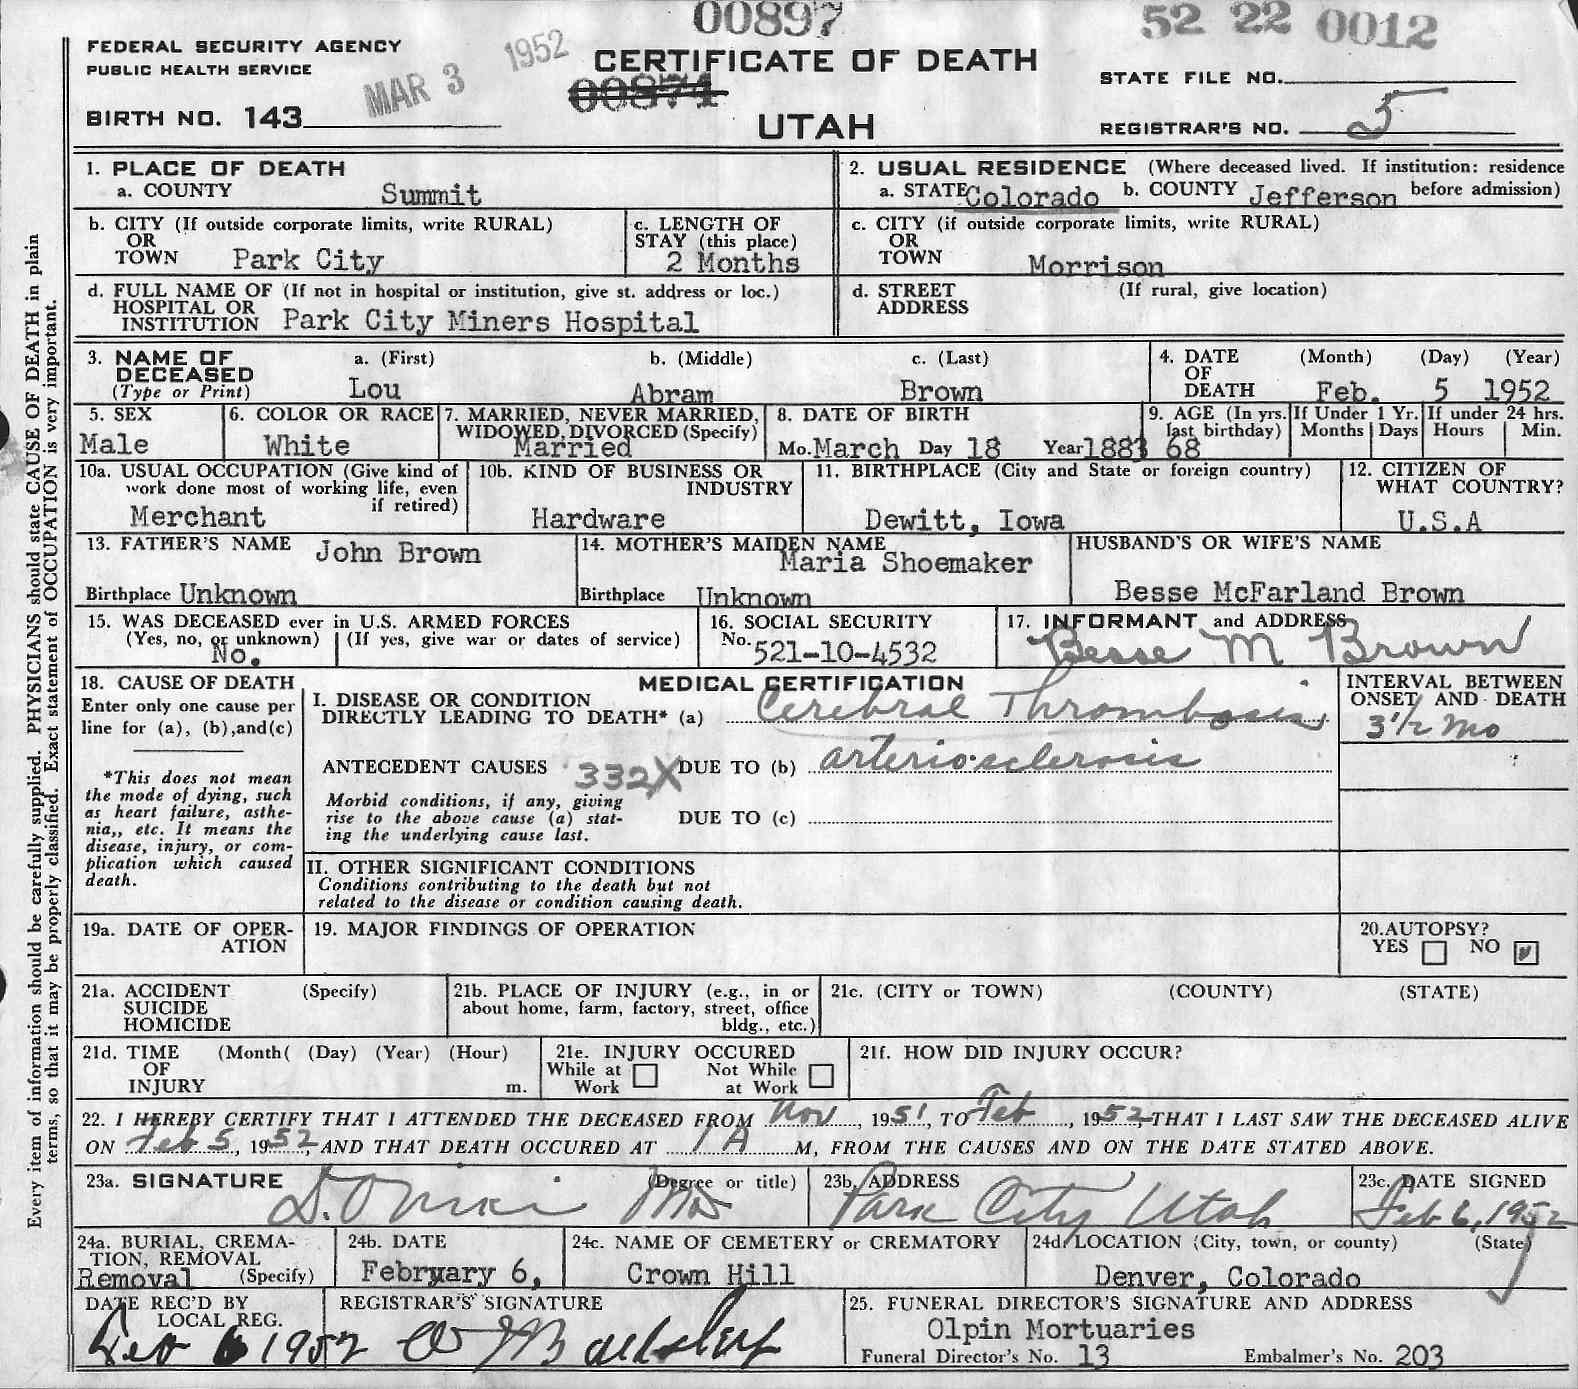 00897
52 22 0012
FEDERAL SECURITY AGENCY
PUBLIC HEALTH SERVICE
MAR 3 1952
CERTIFICATE OF DEATH
00874
UTAH
STATE FILE NO.
BIRTH NO. 143
REGISTRAR'S NO. 5
Every item of information should be carefully supplied. PHYSICIANS should state CAUSE OF DEATH in plain
terms, so that it may be properly classified. Exact statement of OCCUPATION is very important.
1. PLACE OF DEATH
a. COUNTY Summit
2. USUAL RESIDENCE (Where deceased lived. If institution: residence
a. STATE Colorado b. COUNTY Jefferson before admission)
b. CITY (If outside corporate limits, write RURAL)
OR
TOWN Park City
c. LENGTH OF
STAY (this place)
2 Months
c. CITY (if outside corporate limits, write RURAL)
OR
TOWN Morrison
d. FULL NAME OF (If not in hospital or institution, give st. address or loc.)
HOSPITAL OR
INSTITUTION Park City Miners Hospital
d. STREET (If rural, give location)
ADDRESS
3. NAME OF a. (First) b. (Middle) c. (Last)
DECEASED
(Type or Print) Lou Abram Brown
4. DATE (Month) (Day) (Year)
OF
DEATH Feb. 5 1952
5. SEX
Male
6. COLOR OR RACE
White
7. MARRIED, NEVER MARRIED,
WIDOWED, DIVORCED (Specify)
Married
8. DATE OF BIRTH
Mo. March Day 18 Year 1883
9. AGE (In yrs.
last birthday)
68
If Under 1 Yr.
Months Days
If under 24 hrs.
Hours Min.
10a. USUAL OCCUPATION (Give kind of
work done most of working life, even
if retired)
Merchant
10b. KIND OF BUSINESS OR
INDUSTRY
Hardware
11. BIRTHPLACE (City and State or foreign country)
Dewitt, Iowa
12. CITIZEN OF
WHAT COUNTRY?
U.S.A
13. FATHER'S NAME John Brown
Birthplace Unknown
14. MOTHER'S MAIDEN NAME
Maria Shoemaker
Birthplace Unknown
HUSBAND'S OR WIFE'S NAME
Besse McFarland Brown
15. WAS DECEASED ever in U.S. ARMED FORCES
(Yes, no, or unknown) (If yes, give war or dates of service)
No.
16. SOCIAL SECURITY
No. 521-10-4532
17. INFORMANT and ADDRESS
Besse M Brown
18. CAUSE OF DEATH
Enter only one cause per
line for (a), (b),and(c)
*This does not mean
the mode of dying, such
as heart failure, asthe-
nia,, etc. It means the
disease, injury, or com-
plication which caused
death.
MEDICAL CERTIFICATION
I. DISEASE OR CONDITION
DIRECTLY LEADING TO DEATH* (a) Cerebral Thrombosis
ANTECEDENT CAUSES 332X DUE TO (b) arterio-sclerosis
Morbid conditions, if any, giving
rise to the above cause (a) stat-
ing the underlying cause last.
DUE TO (c)
INTERVAL BETWEEN
ONSET AND DEATH
3 1/2 Mo
II. OTHER SIGNIFICANT CONDITIONS
Conditions contributing to the death but not
related to the disease or condition causing death.
19a. DATE OF OPER-
ATION
19. MAJOR FINDINGS OF OPERATION
20.AUTOPSY?
YES NO
21a. ACCIDENT (Specify)
SUICIDE
HOMICIDE
21b. PLACE OF INJURY (e.g., in or
about home, farm, factory, street, office
bldg., etc.)
21c. (CITY or TOWN) (COUNTY) (STATE)
21d. TIME (Month( (Day) (Year) (Hour)
OF
INJURY m.
21e. INJURY OCCURED
While at Not While
Work at Work
21f. HOW DID INJURY OCCUR?
22. I HEREBY CERTIFY THAT I ATTENDED THE DECEASED FROM Nov, 1951, TO Feb, 1952, THAT I LAST SAW THE DECEASED ALIVE
ON Feb 5, 1952, AND THAT DEATH OCCURED AT 1 A M, FROM THE CAUSES AND ON THE DATE STATED ABOVE.
23a. SIGNATURE (Degree or title)
MD
23b. ADDRESS
Park City Utah
23c. DATE SIGNED
Feb 6, 1952
24a. BURIAL, CREMA-
TION, REMOVAL
Removal (Specify)
24b. DATE
February 6,
24c. NAME OF CEMETERY or CREMATORY
Crown Hill
24d. LOCATION (City, town, or county) (State)
Denver, Colorado
DATE REC'D BY
LOCAL REG.
Feb 6 1952
REGISTRAR'S SIGNATURE
25. FUNERAL DIRECTOR'S SIGNATURE AND ADDRESS
Olpin Mortuaries
Funeral Director's No. 13 Embalmer's No. 203